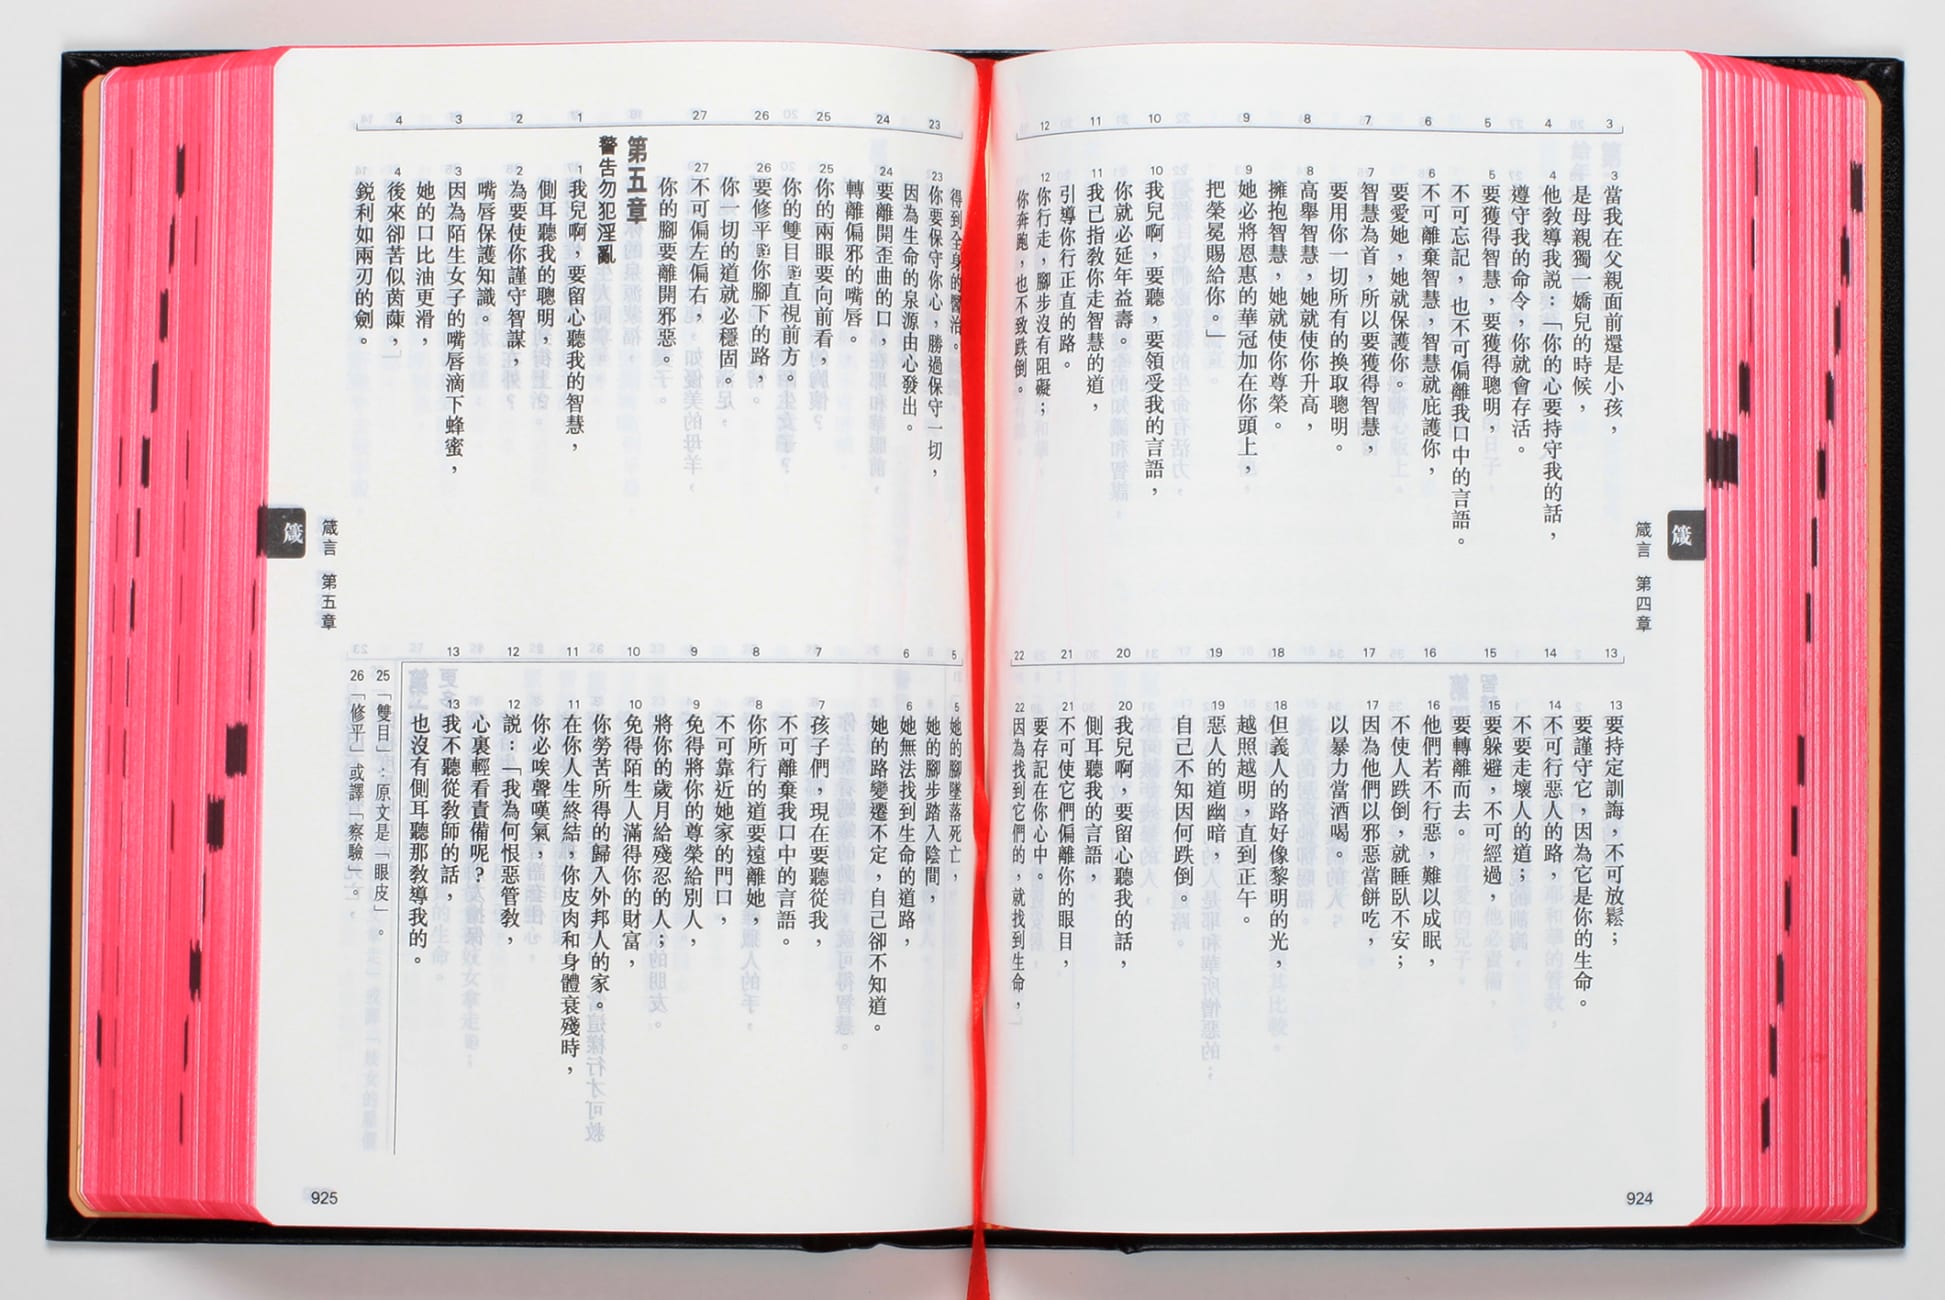 箴言 第四章
箴
3 當我在父親面前還是小孩，
是母親獨一嬌兒的時候，
4 他教導我說：「你的心要持守我的話，
遵守我的命令，你就會存活。
5 要獲得智慧，要獲得聰明，
不可忘記，也不可偏離我口中的言語。
6 不可離棄智慧，智慧就庇護你，
要愛她，她就保護你。
7 智慧為首，所以要獲得智慧，
要用你一切所有的換取聰明。
8 高舉智慧，她就使你升高，
擁抱智慧，她就使你尊榮。
9 她必將恩惠的華冠加在你頭上，
把榮冕賜給你。」
10 我兒啊，要聽，要領受我的言語，
你就必延年益壽。
11 我已指教你走智慧的道，
引導你行正直的路。
12 你行走，腳步沒有阻礙；
你奔跑，也不致跌倒。
13 要持定訓誨，不可放鬆；
要謹守它，因為它是你的生命。
14 不可行惡人的路，
不要走壞人的道；
15 要躲避，不可經過，
要轉離而去。
16 他們若不行惡，難以成眠，
不使人跌倒，就睡臥不安；
17 因為他們以邪惡當餅吃，
以暴力當酒喝。
18 但義人的路好像黎明的光，
越照越明，直到正午。
19 惡人的道幽暗，
自己不知因何跌倒。
20 我兒啊，要留心聽我的話，
側耳聽我的言語，
21 不可使它們偏離你的眼目，
要存記在你心中。
22 因為找到它們的，就找到生命，
924
得到全身的醫治。
23 你要保守你心，勝過保守一切，
因為生命的泉源由心發出。
24 要離開歪曲的口，
轉離偏邪的嘴唇。
25 你的兩眼要向前看，
你的雙目直視前方。
26 要修平你腳下的路，
你一切的道就必穩固。
27 不可偏左偏右，
你的腳要離開邪惡。
第五章
警告勿犯淫亂
1 我兒啊，要留心聽我的智慧，
側耳聽我的聰明，
2 為要使你謹守智謀，
嘴唇保護知識。
3 因為陌生女子的嘴唇滴下蜂蜜，
她的口比油更滑，
4 後來卻苦似茵蔯，
銳利如兩刃的劍。
5 她的腳墜落死亡，
她的腳步踏入陰間，
6 她無法找到生命的道路，
她的路變遷不定，自己卻不知道。
7 孩子們，現在要聽從我，
不可離棄我口中的言語。
8 你所行的道要遠離她，
不可靠近她家的門口，
9 免得將你的尊榮給別人，
將你的歲月給殘忍的人；
10 免得陌生人滿得你的財富，
你勞苦所得的歸入外邦人的家。
11 在你人生終結，你皮肉和身體衰殘時，
你必唉聲嘆氣，
12 說：「我為何恨惡管教，
心裏輕看責備呢？
13 我不聽從教師的話，
也沒有側耳聽那教導我的。
25 「雙目」：原文是「眼皮」。
26 「修平」或譯「察驗」。
箴言 第五章
箴
925